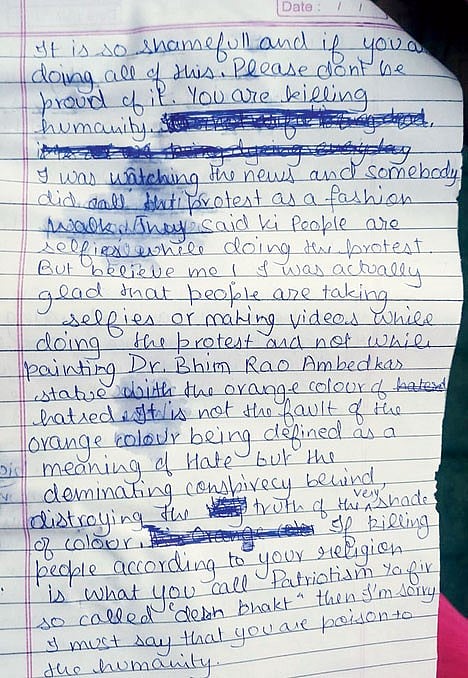 Date : / /
It is so shamefull and if you a
doing all of this. Please dont be
proud of it. You are killing
humanity.
I was watching the news and somebody
did call that protest as a fashion
walk. They said ki People are
selfies while doing the protest.
But believe me! I was actually
glad that people are taking
selfies or making videos while
doing the protest and not while
painting Dr. Bhim Rao Ambedkar
statue with the orange colour of hatered
hatred. It is not the fault of the
orange colour being defined as a
meaning of Hate but the
deminating conspirecy behind,
distroying the truth of the very shade
of colour. If killing
people according to your religion
is what you call Patriotism Ya fir
so called "desh bhakt" then I'm sorry
I must say that you are poison to
the humanity.